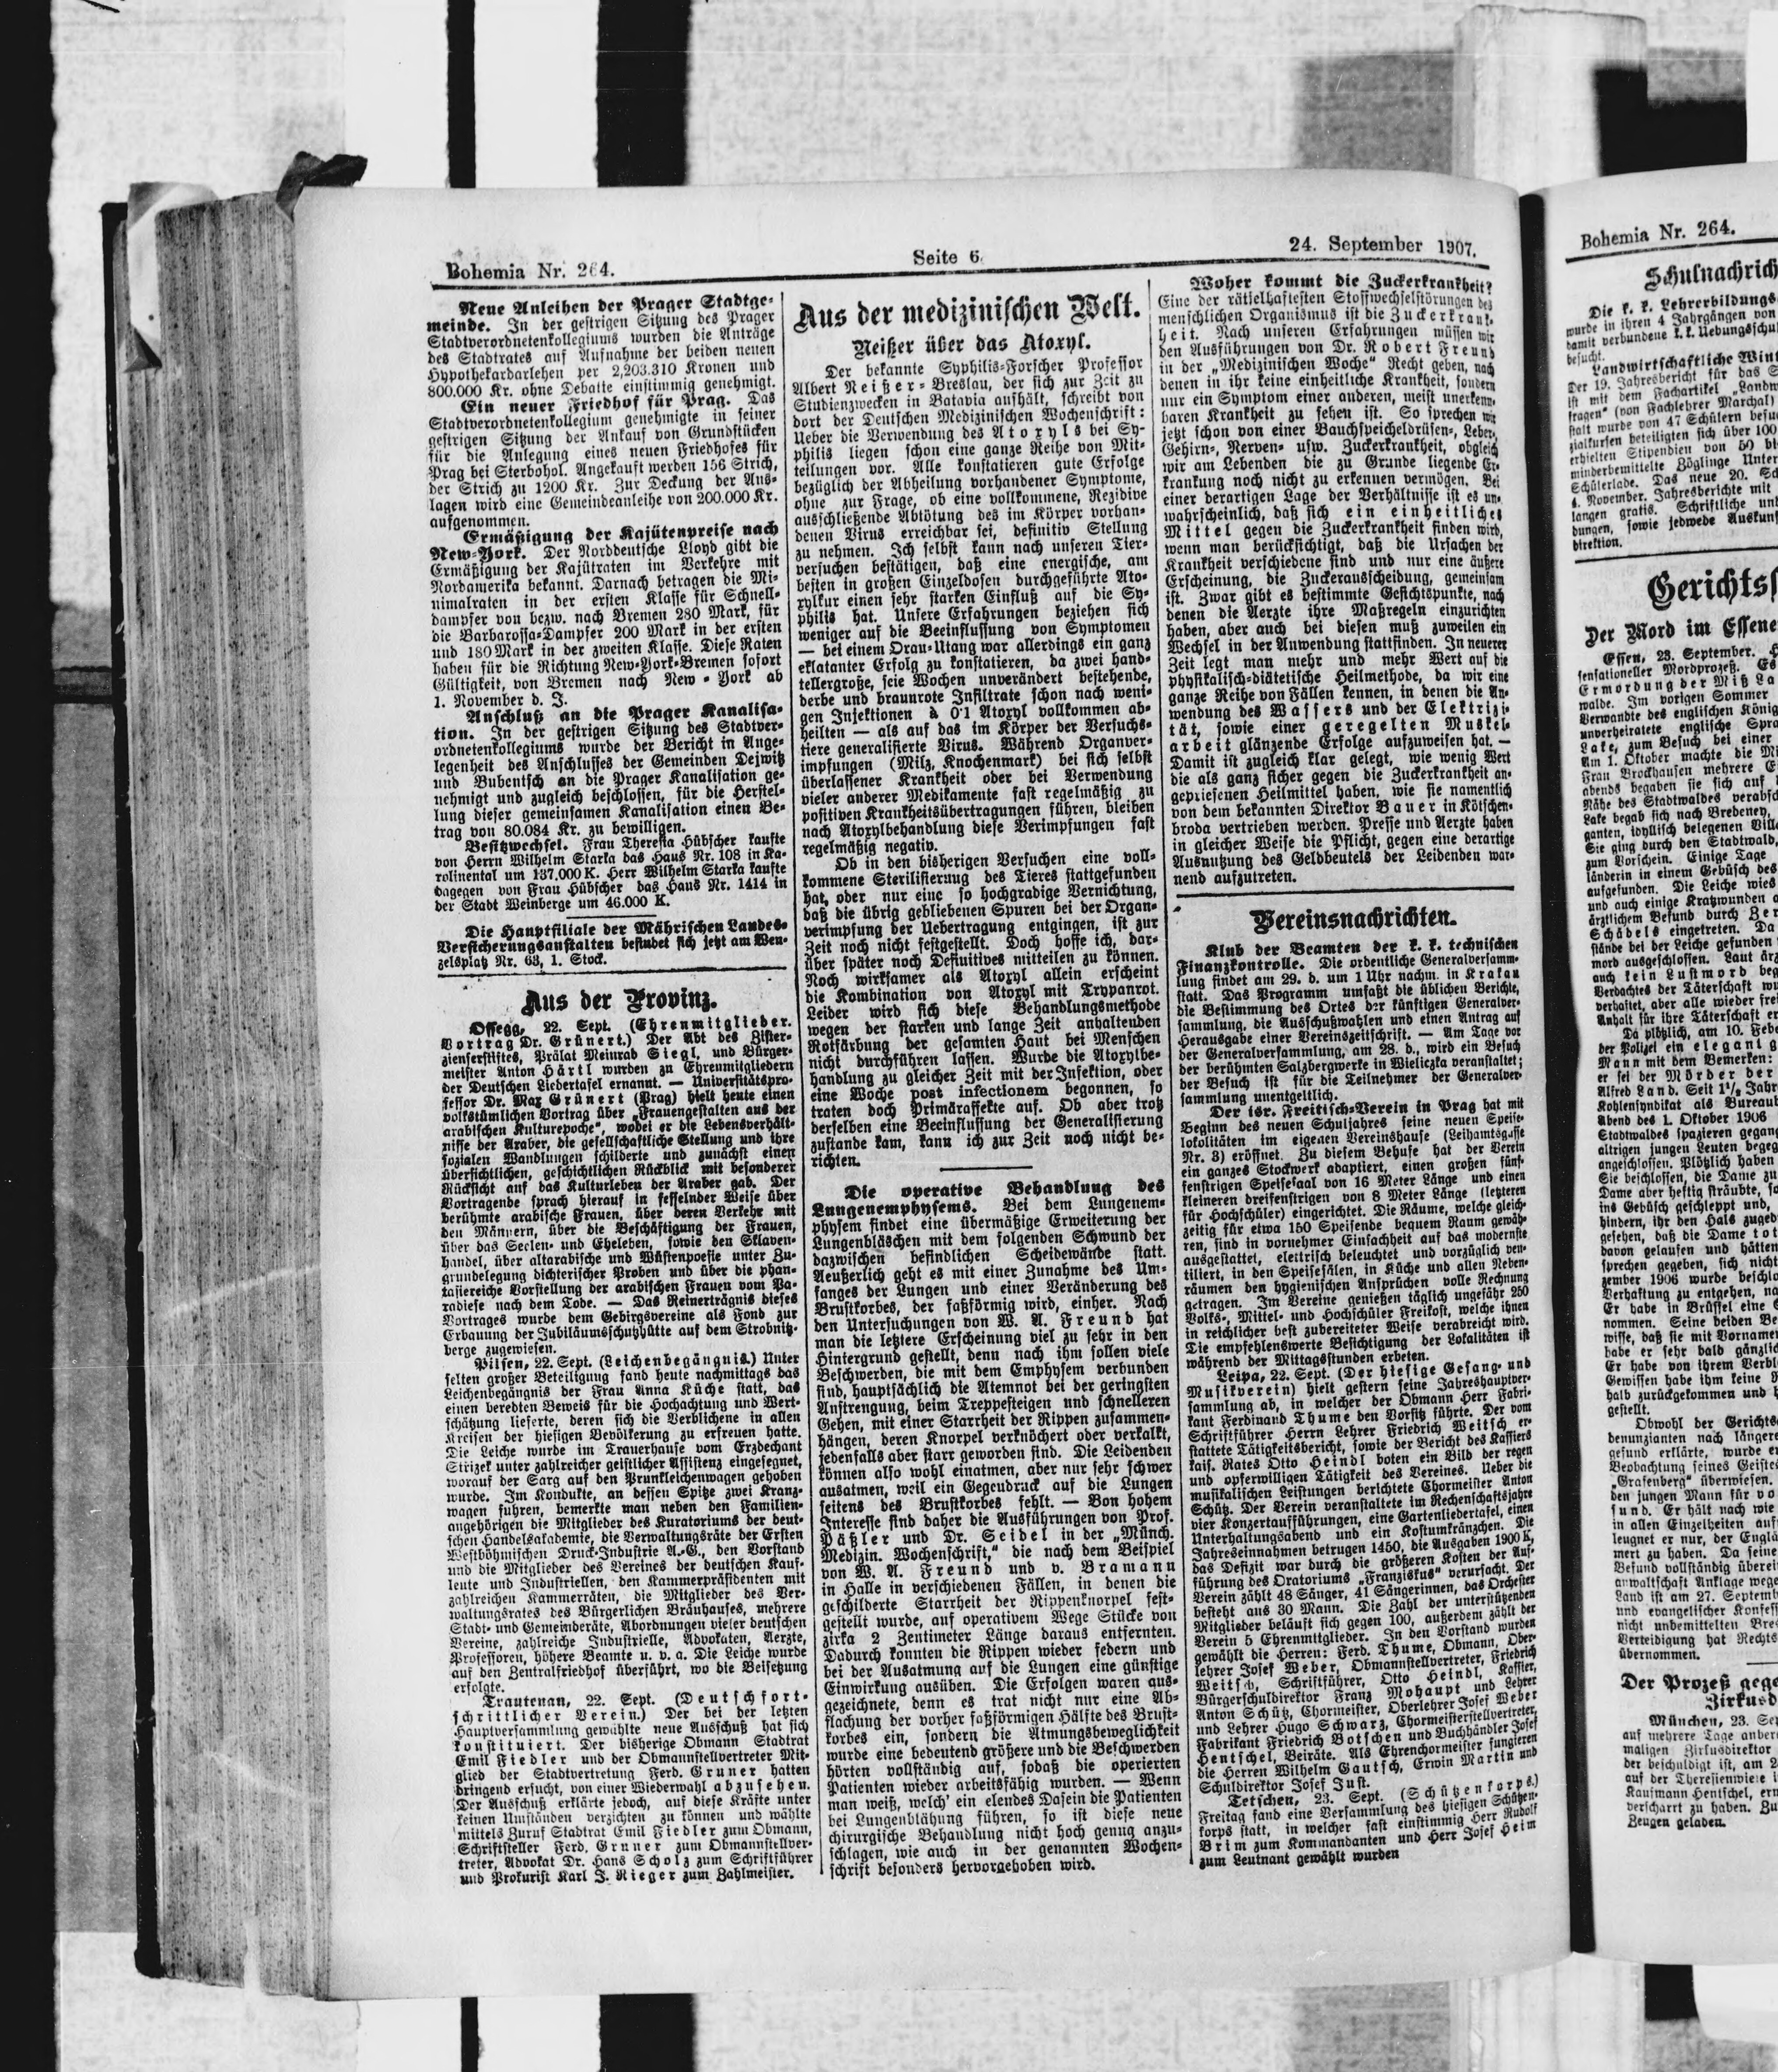 Bohemia Nr. 264.
Seite 6
24. September 1907.
Neue Anleihen der Prager Stadtge-
meinde. In der gestrigen Sitzung des Prager
Stadtverordnetenkollegiums wurden die Anträge
des Stadtrates auf Aufnahme der beiden neuen
Hypothekardarlehen per 2,203.310 Kronen und
800.000 Kr. ohne Debatte einstimmig genehmigt.
Ein neuer Friedhof für Prag. Das
Stadtverordnetenkollegium genehmigte in seiner
gestrigen Sitzung der Ankauf von Grundstücken
für die Anlegung eines neuen Friedhofes für
Prag bei Sterbohol. Angekauft werden 156 Strich,
der Strich zu 1200 Kr. Zur Deckung der Aus-
lagen wird eine Gemeindeanleihe von 200.000 Kr.
aufgenommen.
Ermäßigung der Kajütenpreise nach
New-York. Der Norddeutsche Lloyd gibt die
Ermäßigung der Kajütraten im Verkehre mit
Nordamerika bekannt. Darnach betragen die Mi-
nimalraten in der ersten Klasse für Schnell-
dampfer von bezw. nach Bremen 280 Mark, für
die Barbarossa-Dampfer 200 Mark in der ersten
und 180 Mark in der zweiten Klasse. Diese Raten
haben für die Richtung New-York-Bremen sofort
Gültigkeit, von Bremen nach New-York ab
1. November d. J.
Anschluß an die Prager Kanalisa-
tion. In der gestrigen Sitzung des Stadtver-
ordnetenkollegiums wurde der Bericht in Ange-
legenheit des Anschlusses der Gemeinden Dejwitz
und Bubentsch an die Prager Kanalisation ge-
nehmigt und zugleich beschlossen, für die Herstel-
lung dieser gemeinsamen Kanalisation einen Be-
trag von 80.084 Kr. zu bewilligen.
Besitzwechsel. Frau Theresia Hübscher kaufte
von Herrn Wilhelm Starka das Haus Nr. 108 in Ka-
rolinental um 137,000 K. Herr Wilhelm Starka kaufte
dagegen von Frau Hübscher das Haus Nr. 1414 in
der Stadt Weinberge um 46.000 K.
Die Hauptfiliale der Mährischen Landes-
Versicherungsanstalten befindet sich jetzt am Wen-
zelsplatz Nr. 63, 1. Stock.
Aus der Provinz.
Ossegg, 22. Sept. (Ehrenmitglieder.
Vortrag Dr. Grünert.) Der Abt des Zister-
zienserstiftes, Prälat Meinrab Siegl, und Bürger-
meister Anton Härtl wurden zu Ehrenmitgliedern
der Deutschen Liedertafel ernannt. — Universitätspro-
fessor Dr. Max Grünert (Prag) hielt heute einen
volkstümlichen Vortrag über „Frauengestalten aus der
arabischen Kulturepoche", wobei er die Lebensverhält-
nisse der Araber, die gesellschaftliche Stellung und ihre
sozialen Wandlungen schilderte und zunächst einen
übersichtlichen, geschichtlichen Rückblick mit besonderer
Rücksicht auf das Kulturleben der Araber gab. Der
Vortragende sprach hierauf in fesselnder Weise über
berühmte arabische Frauen, über deren Verkehr mit
den Männern, über die Beschäftigung der Frauen,
über das Seelen- und Eheleben, sowie den Sklaven-
handel, über altarabische und Wüstenpoesie unter Zu-
grundelegung dichterischer Proben und über die phan-
tasiereiche Vorstellung der arabischen Frauen vom Pa-
radiese nach dem Tode. — Das Reinerträgnis dieses
Vortrages wurde dem Gebirgsvereine als Fond zur
Erbauung der Jubiläumsschutzhütte auf dem Strobnitz-
berge zugewiesen.
Pilsen, 22. Sept. (Leichenbegängnis.) Unter
selten großer Beteiligung fand heute nachmittags das
Leichenbegängnis der Frau Anna Küche statt, das
einen beredten Beweis für die Hochachtung und Wert-
schätzung lieferte, deren sich die Verblichene in allen
Kreisen der hiesigen Bevölkerung zu erfreuen hatte.
Die Leiche wurde im Trauerhause vom Erzdechant
Střizek unter zahlreicher geistlicher Assistenz eingesegnet,
worauf der Sarg auf den Prunkleichenwagen gehoben
wurde. Im Kondukte, an dessen Spitze zwei Kranz-
wagen fuhren, bemerkte man neben den Familien-
angehörigen die Mitglieder des Kuratoriums der deut-
schen Handelsakademie, die Verwaltungsräte der Ersten
Westböhmischen Druck-Industrie A.-G., den Vorstand
und die Mitglieder des Vereines der deutschen Kauf-
leute und Industriellen, den Kammerpräsidenten mit
zahlreichen Kammerräten, die Mitglieder des Ver-
waltungsrates des Bürgerlichen Bräuhauses, mehrere
Stadt- und Gemeinderäte, Abordnungen vieler deutschen
Vereine, zahlreiche Industrielle, Advokaten, Aerzte,
Professoren, höhere Beamte u. v. a. Die Leiche wurde
auf den Zentralfriedhof überführt, wo die Beisetzung
erfolgte.
Trautenau, 22. Sept. (Deutschfort-
schrittlicher Verein.) Der bei der letzten
Hauptversammlung gewählte neue Ausschuß hat sich
konstituiert. Der bisherige Obmann Stadtrat
Emil Fiedler und der Obmannstellvertreter Mit-
glied der Stadtvertretung Ferd. Gruner hatten
dringend ersucht, von einer Wiederwahl abzusehen.
Der Ausschuß erklärte jedoch, auf diese Kräfte unter
keinen Umständen verzichten zu können und wählte
mittels Zuruf Stadtrat Emil Fiedler zum Obmann,
Schriftsteller Ferd. Gruner zum Obmannstellver-
treter, Advokat Dr. Hans Scholz zum Schriftführer
und Prokurist Karl J. Rieger zum Zahlmeister.
Aus der medizinischen Welt.
Neißer über das Atoxyl.
Der bekannte Syphilis-Forscher Professor
Albert Neißer-Breslau, der sich zur Zeit zu
Studienzwecken in Batavia aufhält, schreibt von
dort der Deutschen Medizinischen Wochenschrift:
Ueber die Verwendung des Atoxyls bei Sy-
philis liegen schon eine ganze Reihe von Mit-
teilungen vor. Alle konstatieren gute Erfolge
bezüglich der Abheilung vorhandener Symptome,
ohne zur Frage, ob eine vollkommene, Rezidive
ausschließende Abtötung des im Körper vorhan-
denen Virus erreichbar sei, definitiv Stellung
zu nehmen. Ich selbst kann nach unseren Tier-
versuchen bestätigen, daß eine energische, am
besten in großen Einzeldosen durchgeführte Ato-
xylkur einen sehr starken Einfluß auf die Sy-
philis hat. Unsere Erfahrungen beziehen sich
weniger auf die Beeinflussung von Symptomen
— bei einem Orau-Utang war allerdings ein ganz
eklatanter Erfolg zu konstatieren, da zwei hand-
tellergroße, seie Wochen unverändert bestehende,
derbe und braunrote Infiltrate schon nach weni-
gen Injektionen à 0·1 Atoxyl vollkommen ab-
heilten — als auf das im Körper der Versuchs-
tiere generalisierte Virus. Während Organver-
impfungen (Milz, Knochenmark) bei sich selbst
überlassener Krankheit oder bei Verwendung
vieler anderer Medikamente fast regelmäßig zu
positiven Krankheitsübertragungen führen, bleiben
nach Atoxylbehandlung diese Verimpfungen fast
regelmäßig negativ.
Ob in den bisherigen Versuchen eine voll-
kommene Sterilisierung des Tieres stattgefunden
hat, oder nur eine so hochgradige Vernichtung,
daß die übrig gebliebenen Spuren bei der Organ-
verimpfung der Uebertragung entgingen, ist zur
Zeit noch nicht festgestellt. Doch hoffe ich, dar-
über später noch Definitives mitteilen zu können.
Noch wirksamer als Atoxyl allein erscheint
die Kombination von Atoxyl mit Trypanrot.
Leider wird sich diese Behandlungsmethode
wegen der starken und lange Zeit anhaltenden
Rotfärbung der gesamten Haut bei Menschen
nicht durchführen lassen. Wurde die Atoxylbe-
handlung zu gleicher Zeit mit der Infektion, oder
eine Woche post infectionem begonnen, so
traten doch Primäraffekte auf. Ob aber trotz
derselben eine Beeinflussung der Generalisierung
zustande kam, kann ich zur Zeit noch nicht be-
richten.
Die operative Behandlung des
Lungenemphysems. Bei dem Lungenem-
physem findet eine übermäßige Erweiterung der
Lungenbläschen mit dem folgenden Schwund der
dazwischen befindlichen Scheidewände statt.
Aeußerlich geht es mit einer Zunahme des Um-
fanges der Lungen und einer Veränderung des
Brustkorbes, der faßförmig wird, einher. Nach
den Untersuchungen von W. A. Freund hat
man die letztere Erscheinung viel zu sehr in den
Hintergrund gestellt, denn nach ihm sollen viele
Beschwerden, die mit dem Emphysem verbunden
sind, hauptsächlich die Atemnot bei der geringsten
Anstrengung, beim Treppesteigen und schnelleren
Gehen, mit einer Starrheit der Rippen zusammen-
hängen, deren Knorpel verknöchert oder verkalkt,
jedenfalls aber starr geworden sind. Die Leidenden
können also wohl einatmen, aber nur sehr schwer
ausatmen, weil ein Gegendruck auf die Lungen
seitens des Brustkorbes fehlt. — Von hohem
Interesse sind daher die Ausführungen von Prof.
Päßler und Dr. Seidel in der „Münch.
Medizin. Wochenschrift," die nach dem Beispiel
von W. A. Freund und v. Bramann
in Halle in verschiedenen Fällen, in denen die
geschilderte Starrheit der Rippenknorpel fest-
gestellt wurde, auf operativem Wege Stücke von
zirka 2 Zentimeter Länge daraus entfernten.
Dadurch konnten die Rippen wieder federn und
bei der Ausatmung auf die Lungen eine günstige
Einwirkung ausüben. Die Erfolgen waren aus-
gezeichnete, denn es trat nicht nur eine Ab-
flachung der vorher faßförmigen Hälfte des Brust-
korbes ein, sondern die Atmungsbeweglichkeit
wurde eine bedeutend größere und die Beschwerden
hörten vollständig auf, sodaß die operierten
Patienten wieder arbeitsfähig wurden. — Wenn
man weiß, welch' ein elendes Dasein die Patienten
bei Lungenblähung führen, so ist diese neue
chirurgische Behandlung nicht hoch genug anzu-
schlagen, wie auch in der genannten Wochen-
schrift besonders hervorgehoben wird.
Woher kommt die Zuckerkrankheit?
Eine der rätselhaftesten Stoffwechselstörungen des
menschlichen Organismus ist die Zuckerkrank-
heit. Nach unseren Erfahrungen müssen wir
den Ausführungen von Dr. Robert Freund
in der „Medizinischen Woche" Recht geben, nach
denen in ihr keine einheitliche Krankheit, sondern
nur ein Symptom einer anderen, meist unerkenn-
baren Krankheit zu sehen ist. So sprechen wir
jetzt schon von einer Bauchspeicheldrüsen-, Leber-,
Gehirn-, Nerven- usw. Zuckerkrankheit, obgleich
wir am Lebenden die zu Grunde liegende Er-
krankung noch nicht zu erkennen vermögen. Bei
einer derartigen Lage der Verhältnisse ist es un-
wahrscheinlich, daß sich ein einheitliches
Mittel gegen die Zuckerkrankheit finden wird,
wenn man berücksichtigt, daß die Ursachen der
Krankheit verschiedene sind und nur eine äußere
Erscheinung, die Zuckerausscheidung, gemeinsam
ist. Zwar gibt es bestimmte Gesichtspunkte, nach
denen die Aerzte ihre Maßregeln einzurichten
haben, aber auch bei diesen muß zuweilen ein
Wechsel in der Anwendung stattfinden. In neuerer
Zeit legt man mehr und mehr Wert auf die
physikalisch-diätetische Heilmethode, da wir eine
ganze Reihe von Fällen kennen, in denen die An-
wendung des Wassers und der Elektrizi-
tät, sowie einer geregelten Muskel-
arbeit glänzende Erfolge aufzuweisen hat. —
Damit ist zugleich klar gelegt, wie wenig Wert
die als ganz sicher gegen die Zuckerkrankheit an-
gepriesenen Heilmittel haben, wie sie namentlich
von dem bekannten Direktor Bauer in Kötschen-
broda vertrieben werden. Presse und Aerzte haben
in gleicher Weise die Pflicht, gegen eine derartige
Ausnutzung des Geldbeutels der Leidenden war-
nend aufzutreten.
Vereinsnachrichten.
Klub der Beamten der k. k. technischen
Finanzkontrolle. Die ordentliche Generalversamm-
lung findet am 29. d. um 1 Uhr nachm. in Krakau
statt. Das Programm umfaßt die üblichen Berichte,
die Bestimmung des Ortes der künftigen Generalver-
sammlung, die Ausschußwahlen und einen Antrag auf
Herausgabe einer Vereinszeitschrift. — Am Tage vor
der Generalversammlung, am 28. d., wird ein Besuch
der berühmten Salzbergwerke in Wieliczka veranstaltet;
der Besuch ist für die Teilnehmer der Generalver-
sammlung unentgeltlich.
Der isr. Freitisch-Verein in Prag hat mit
Beginn des neuen Schuljahres seine neuen Speise-
lokolitäten im eigenen Vereinshause (Leihamtsgasse
Nr. 3) eröffnet. Zu diesem Behufe hat der Verein
ein ganzes Stockwerk adaptiert, einen großen fünf-
fenstrigen Speisesaal von 16 Meter Länge und einen
kleineren dreifenstrigen von 8 Meter Länge (letzteren
für Hochschüler) eingerichtet. Die Räume, welche gleich-
zeitig für etwa 150 Speisende bequem Raum gewäh-
ren, sind in vornehmer Einfachheit auf das modernste
ausgestattet, elektrisch beleuchtet und vorzüglich ven-
tiliert, in den Speisesälen, in Küche und allen Neben-
räumen den hygienischen Ansprüchen volle Rechnung
getragen. Im Vereine genießen täglich ungefähr 250
Volks-, Mittel- und Hochschüler Freikost, welche ihnen
in reichlicher best zubereiteter Weise verabreicht wird.
Die empfehlenswerte Besichtigung der Lokalitäten ist
während der Mittagsstunden erbeten.
Leipa, 22. Sept. (Der hiesige Gesang- und
Musikverein) hielt gestern seine Jahreshauptver-
sammlung ab, in welcher der Obmann Herr Fabri-
kant Ferdinand Thume den Vorsitz führte. Der vom
Schriftführer Herrn Lehrer Friedrich Weitsch er-
stattete Tätigkeitsbericht, sowie der Bericht des Kassiers
kais. Rates Otto Heindl boten ein Bild der regen
und opferwilligen Tätigkeit des Vereines. Ueber die
musikalischen Leistungen berichtete Chormeister Anton
Schütz. Der Verein veranstaltete im Rechenschaftsjahre
vier Konzertaufführungen, eine Gartenliedertafel, einen
Unterhaltungsabend und ein Kostumkränzchen. Die
Jahreseinnahmen betrugen 1450, die Ausgaben 1900 K,
das Defizit war durch die größeren Kosten der Auf-
führung des Oratoriums „Franziskus" verursacht. Der
Verein zählt 48 Sänger, 41 Sängerinnen, das Orchester
besteht aus 30 Mann. Die Zahl der unterstützenden
Mitglieder beläuft sich gegen 100, außerdem zählt der
Verein 5 Ehrenmitglieder. In den Vorstand wurden
gewählt die Herren: Ferd. Thume, Obmann, Ober-
lehrer Josef Weber, Obmannstellvertreter, Friedrich
Weitsch, Schriftführer, Otto Heindl, Kassier,
Bürgerschuldirektor Franz Mohaupt und Lehrer
Anton Schütz, Chormeister, Oberlehrer Josef Weber
und Lehrer Hugo Schwarz, Chormeisterstellvertreter,
Fabrikant Friedrich Botschen und Buchhändler Josef
Hentschel, Beiräte. Als Ehrenchormeister fungieren
die Herren Wilhelm Gautsch, Erwin Martin und
Schuldirektor Josef Just.
Tetschen, 23. Sept. (Schützenkorps.)
Freitag fand eine Versammlung des hiesigen Schützen-
korps statt, in welcher fast einstimmig Herr Rudolf
Brim zum Kommandanten und Herr Josef Heim
zum Leutnant gewählt wurden
Bohemia Nr. 264.
Schulnachrich
Die k. k. Lehrerbildungs
wurde in ihren 4 Jahrgängen von
damit verbundene k. k. Uebungsschul
besucht.
Landwirtschaftliche Wint
Der 19. Jahresbericht für das S
ist mit dem Fachartikel „Landw
fragen" (von Fachlehrer Marchal)
stalt wurde von 47 Schülern besu
zialkursen beteiligten sich über 100
erhielten Stipendien von 50 bi
minderbemittelte Zöglinge Unter
Schülerlade. Das neue 20. Sc
4. November. Jahresberichte mit
langen gratis. Schriftliche und
dungen, sowie jedwede Auskunf
direktion.
Gerichtss
Der Mord im Essene
Essen, 23. September.
sensationeller Mordprozeß. Es
Ermordung der Miß La
walde. Im vorigen Sommer
Verwandte des englischen König
unverheiratete englische Spra
Lake, zum Besuch bei einer
Am 1. Oktober machte die Mi
Frau Brockhausen mehrere E
abends begaben sie sich auf
Nähe des Stadtwaldes verabsc
Lake begab sich nach Bredeney,
ganten, idyllisch belegenen Vill
Sie ging durch den Stadtwald,
zum Vorschein. Einige Tage
länderin in einem Gebüsch des
aufgefunden. Die Leiche wies
und auch einige Kratzwunden a
ärztlichem Befund durch Zer
Schädels eingetreten. Da
stände bei der Leiche gefunden
mord ausgeschlossen. Laut ärz
auch kein Lustmord beg
Verdachtes der Täterschaft wu
verhaftet, aber alle wieder frei
Anhalt für ihre Täterschaft er
Da plötzlich, am 10. Febe
der Polizei ein elegant g
Mann mit dem Bemerken:
er sei der Mörder der
Alfred Land. Seit 1½ Jahr
Kohlensyndikat als Bureau
Abend des 1. Oktober 1906
Stadtwaldes spazieren gegang
altrigen jungen Leuten begeg
angeschlossen. Plötzlich haben
Sie beschlossen, die Dame zu
Dame aber heftig sträubte, so
ins Gebüsch geschleppt und,
hindern, ihr den Hals zuged
gesehen, daß die Dame tot
davon gelaufen und hätten
sprechen gegeben, sich nicht
zember 1906 wurde beschlo
Verhaftung zu entgehen, na
Er habe in Brüssel eine
nommen. Seine beiden Be
wisse, daß sie mit Vornamen
habe er sehr bald gänzlic
Er habe von ihrem Verbl
Gewissen habe ihm keine R
halb zurückgekommen und
gestellt.
Obwohl der Gerichts
denunzianten nach längere
gesund erklärte, wurde er
Beobachtung seines Geiste
„Grafenberg" überwiesen.
den jungen Mann für vo
sund. Er hält nach wie
in allen Einzelheiten auf
leugnet er nur, der Englä
mert zu haben. Da seine
Befund vollständig überei
anwaltschaft Anklage wege
Land ist am 27. Septemb
und evangelischer Konfess
nicht unbemittelten Bre
Verteidigung hat Rechts
übernommen.
Der Prozeß gege
Zirkusd
München, 23. Se
auf mehrere Tage anber
maligen Zirkusdirektor
der beschuldigt ist, am 2
auf der Theresienwiese
Kaufmann Hentschel, er
verscharrt zu haben. Zu
Zeugen geladen.